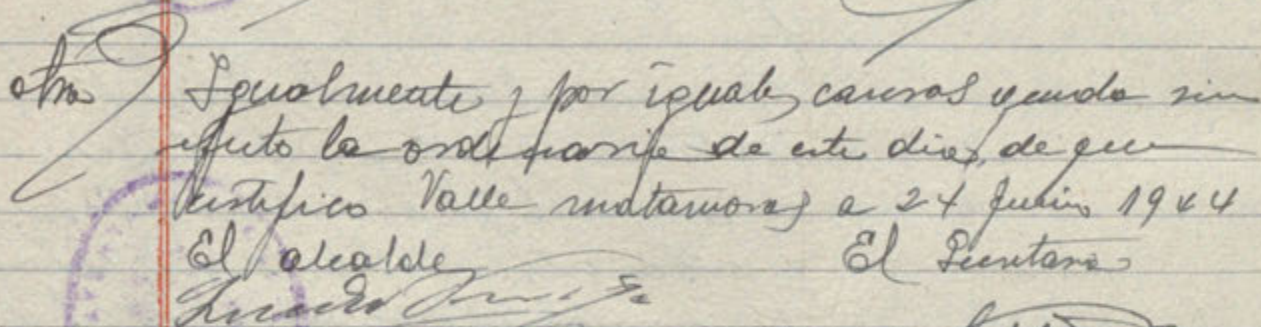 otra Igualmente y por iguales causas queda sin
efecto la ordinaria de este dia, de que
certifico Valle matamoros a 24 Junio 1944
El alcalde El Secretario